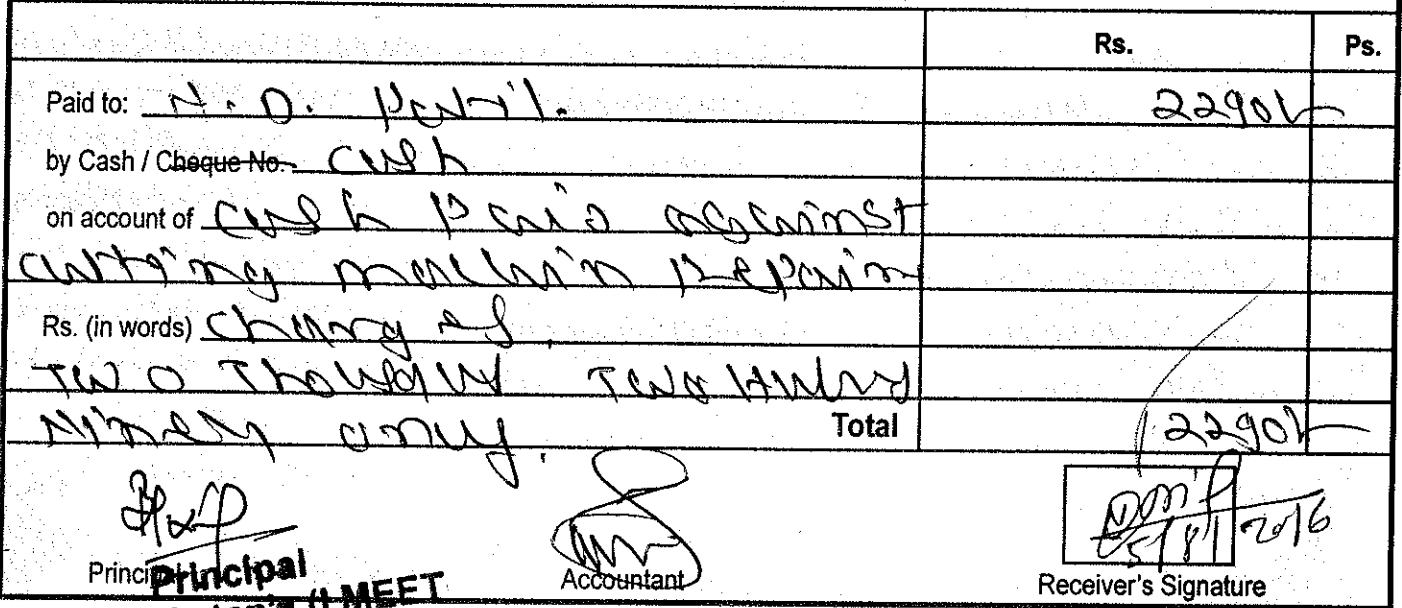 Rs. Ps.
Paid to: N. D. Patil. 2290/-
by Cash / Cheque No. Cash
on account of Cash Paid against
cutting machin Repair
Rs. (in words) Charges.
Two Thousand Two Hundred
Ninety only. Total 2290/-
5/8/2016
Principal Accountant Receiver's Signature
Principal
MEET